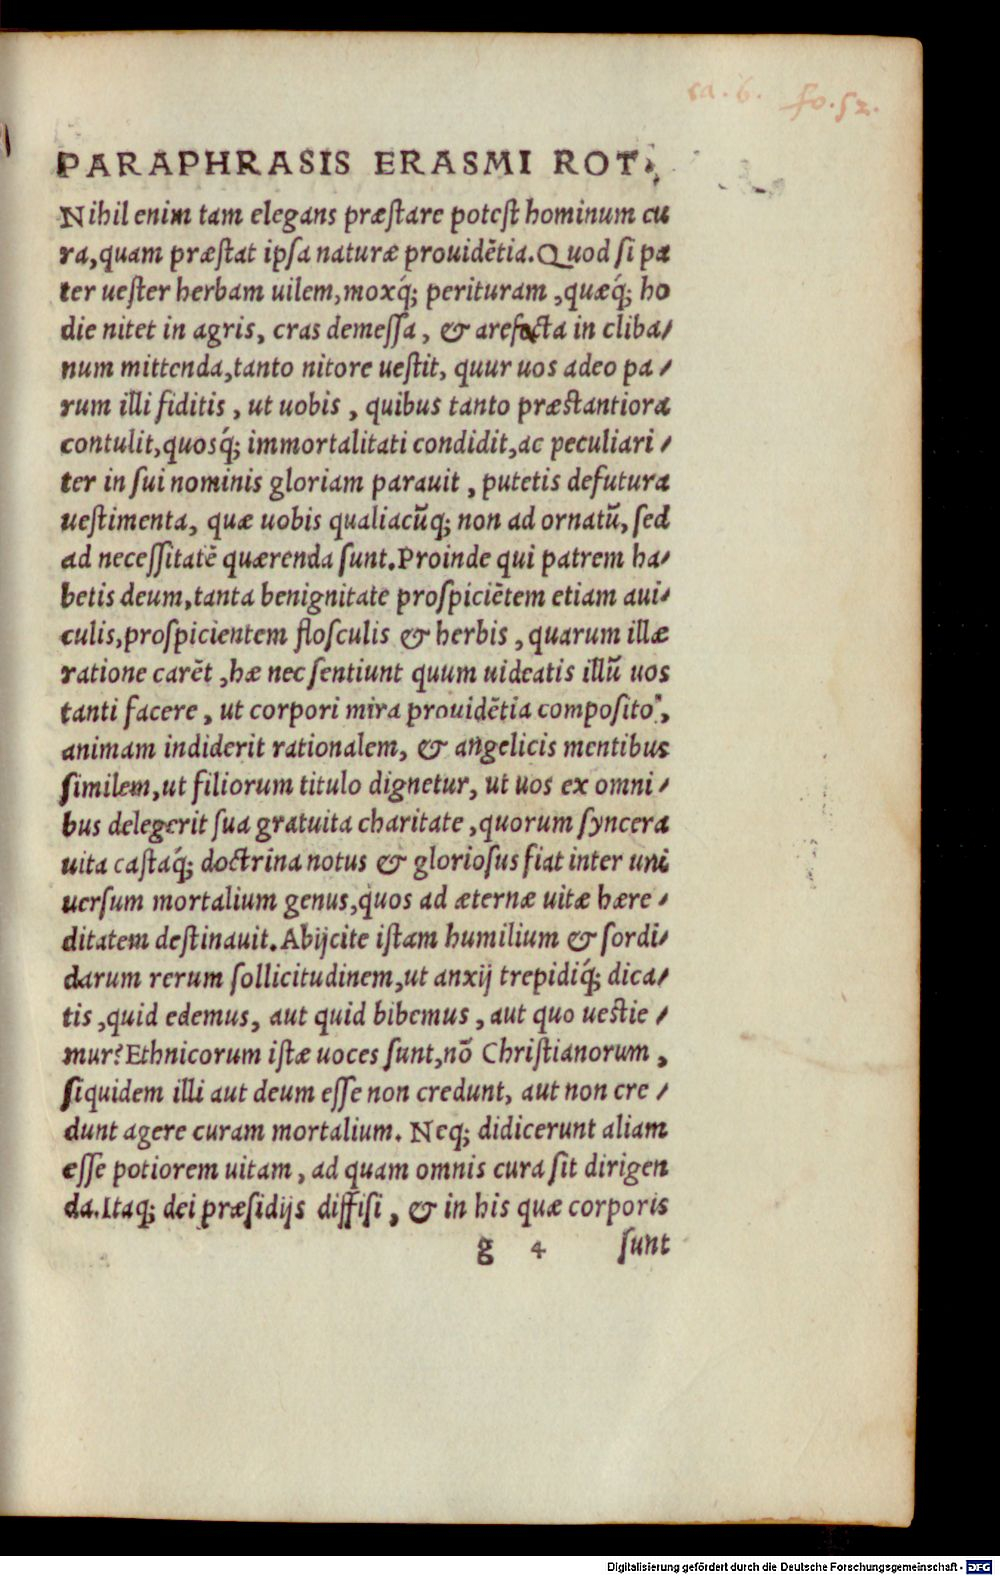 ca. 6. fo. 52.
PARAPHRASIS ERASMI ROT.
Nihil enim tam elegans præſtare poteſt hominum cu
ra, quam præſtat ipſa naturæ prouidẽtia. Quod ſi pa
ter ueſter herbam uilem, moxq́; perituram, quæq́; ho
die nitet in agris, cras demeſſa, & arefacta in cliba/
num mittenda, tanto nitore ueſtit, quur uos adeo pa/
rum illi fiditis, ut uobis, quibus tanto præſtantiora
contulit, quosq́; immortalitati condidit, ac peculiari/
ter in ſui nominis gloriam parauit, putetis defutura
ueſtimenta, quæ uobis qualiacũq; non ad ornatũ, ſed
ad neceſſitatẽ quærenda ſunt. Proinde qui patrem ha/
betis deum, tanta benignitate proſpiciẽtem etiam aui/
culis, proſpicientem floſculis & herbis, quarum illæ
ratione carẽt, hæ nec ſentiunt quum uideatis illũ uos
tanti facere, ut corpori mira prouidẽtia compoſito,
animam indiderit rationalem, & angelicis mentibus
ſimilem, ut filiorum titulo dignetur, ut uos ex omni/
bus delegerit ſua gratuita charitate, quorum ſyncera
uita caſtaq́; doctrina notus & glorioſus fiat inter uni
uerſum mortalium genus, quos ad æternæ uitæ hære/
ditatem deſtinauit. Abijcite iſtam humilium & ſordi/
darum rerum ſollicitudinem, ut anxij trepidiq́; dica/
tis, quid edemus, aut quid bibemus, aut quo ueſtie/
mur? Ethnicorum iſtæ uoces ſunt, nõ Chriſtianorum,
ſiquidem illi aut deum eſſe non credunt, aut non cre/
dunt agere curam mortalium. Neq; didicerunt aliam
eſſe potiorem uitam, ad quam omnis cura ſit dirigen
da. Itaq; dei præſidijs diffiſi, & in his quæ corporis
g 4 ſunt
Digitalisierung gefördert durch die Deutsche Forschungsgemeinschaft - DFG